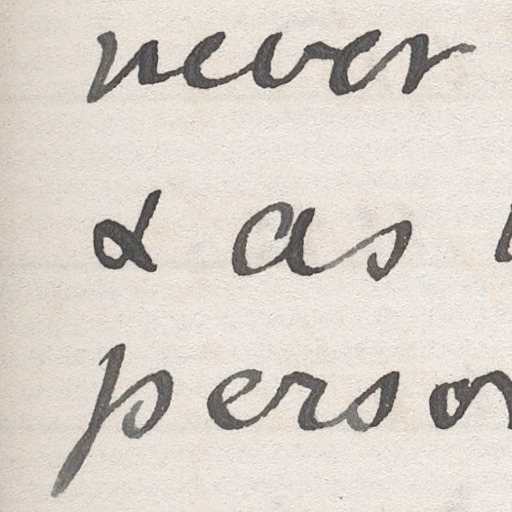 never
& as
person